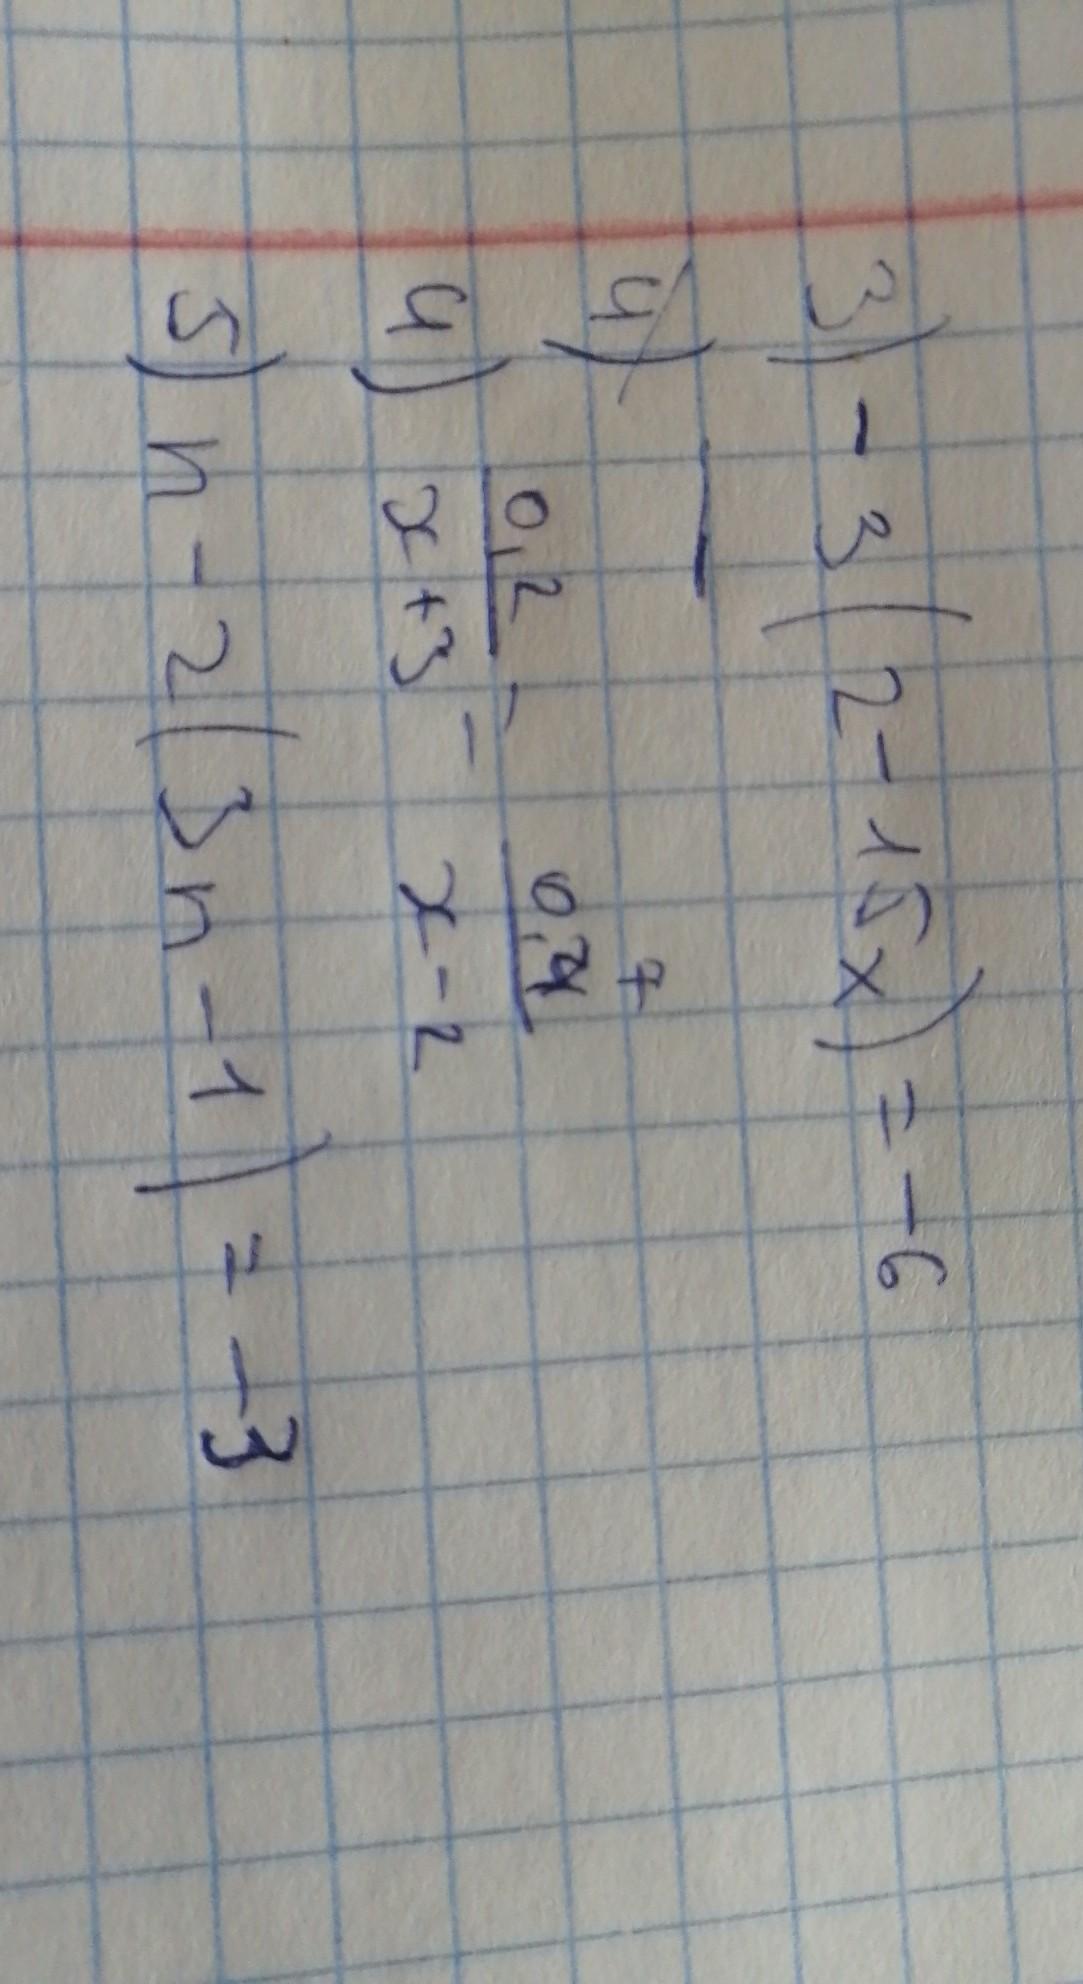 3) - 3(2-15x) = -6
4)
7
4) 0,2/x+3 = 0,7/x-2
5) n - 2(3n-1) = -3